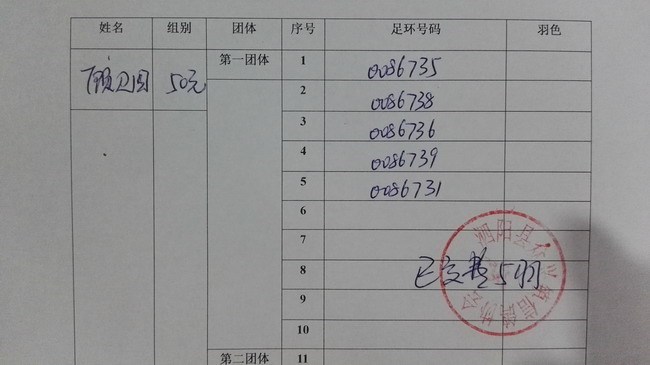 姓名 组别 团体 序号 足环号码 羽色
顾卫国 50元 第一团体 1 0086735
2 0086738
3 0086736
4 0086739
5 0086731
6
7
8 已交 5羽
9
10
第二团体 11
泗阳县 信鸽协会